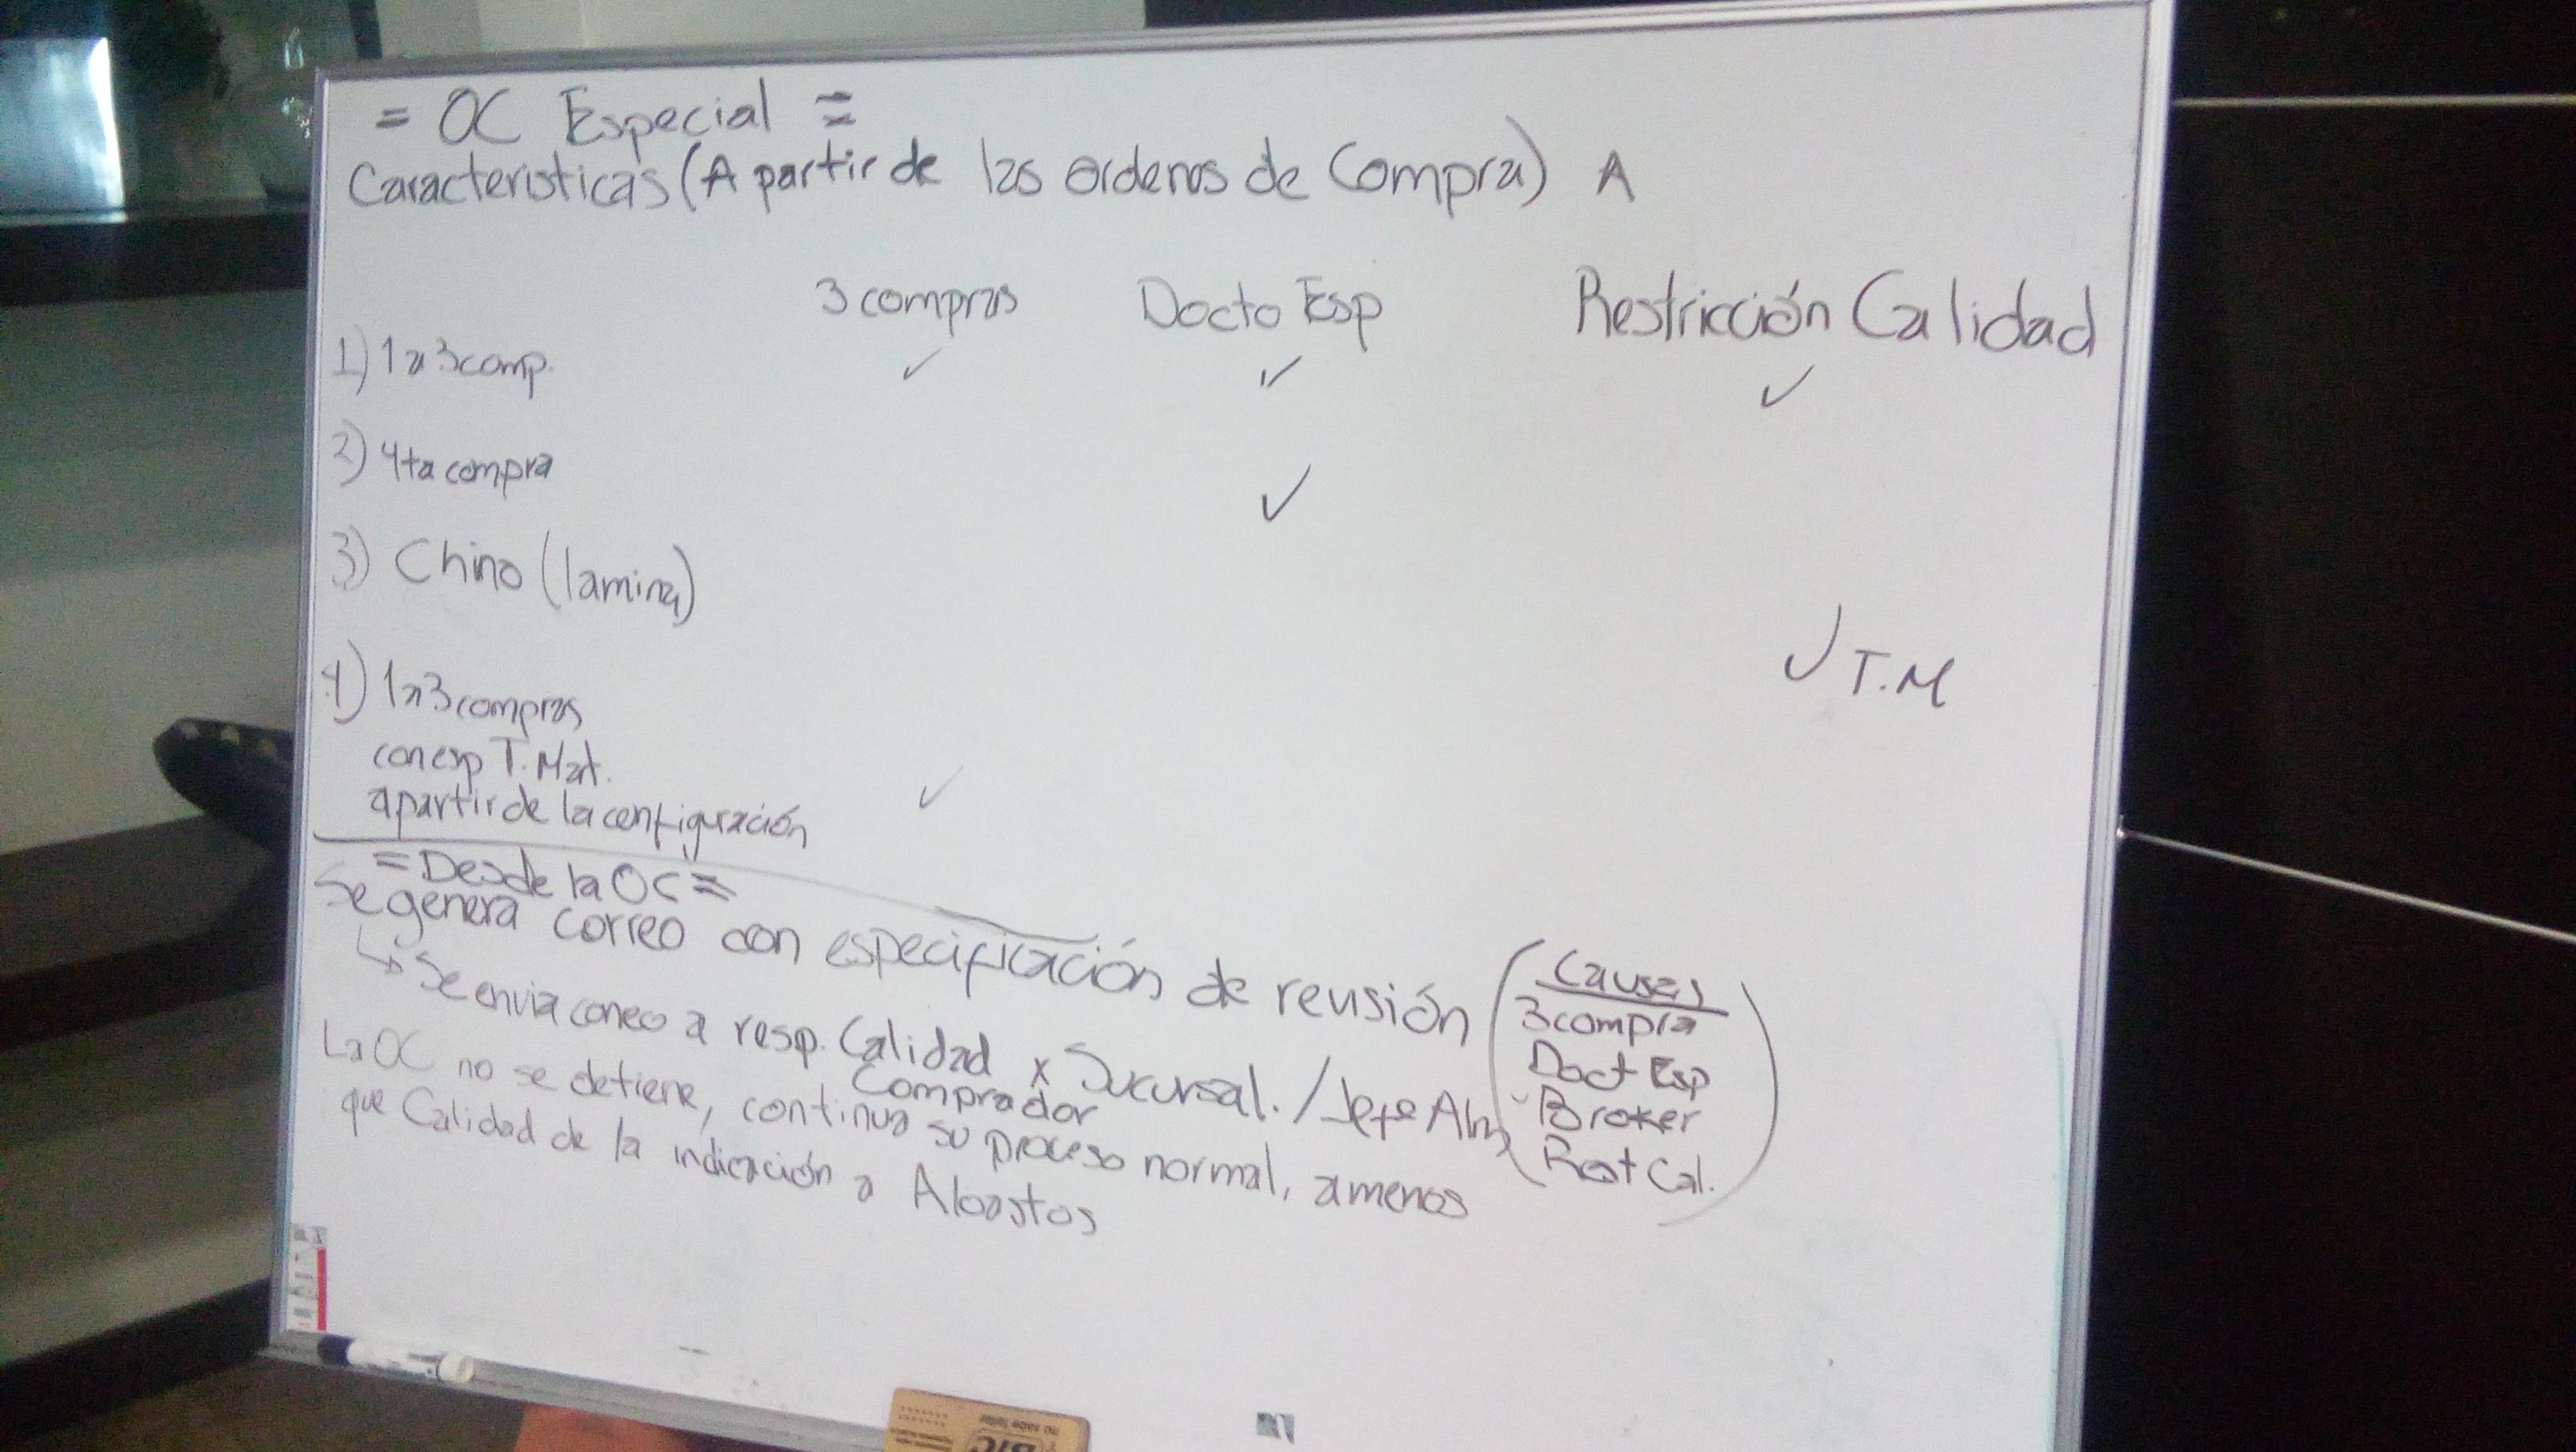 = OC Especial =
Caracteristicas (A partir de las ordenes de Compra) A
3 compras Docto Esp Restricción Calidad
1) 1a3comp. ✓ ✓ ✓
2) 4ta compra ✓
3) Chino (lamina) ✓ T.M
4) 1a3compras
con esp T. Mat.
a partir de la configuración ✓
= Desde la OC =
Se genera correo con especificación de revisión
↳ Se envia correo a resp. Calidad x Sucursal. / Jefe Alm
Comprador
La OC no se detiene, continua su proceso normal, a menos
que Calidad de la indicación a Abastos
Causas
3compra
Doct Esp
Broker
Rest Cal.
BIC
no sabe fallar